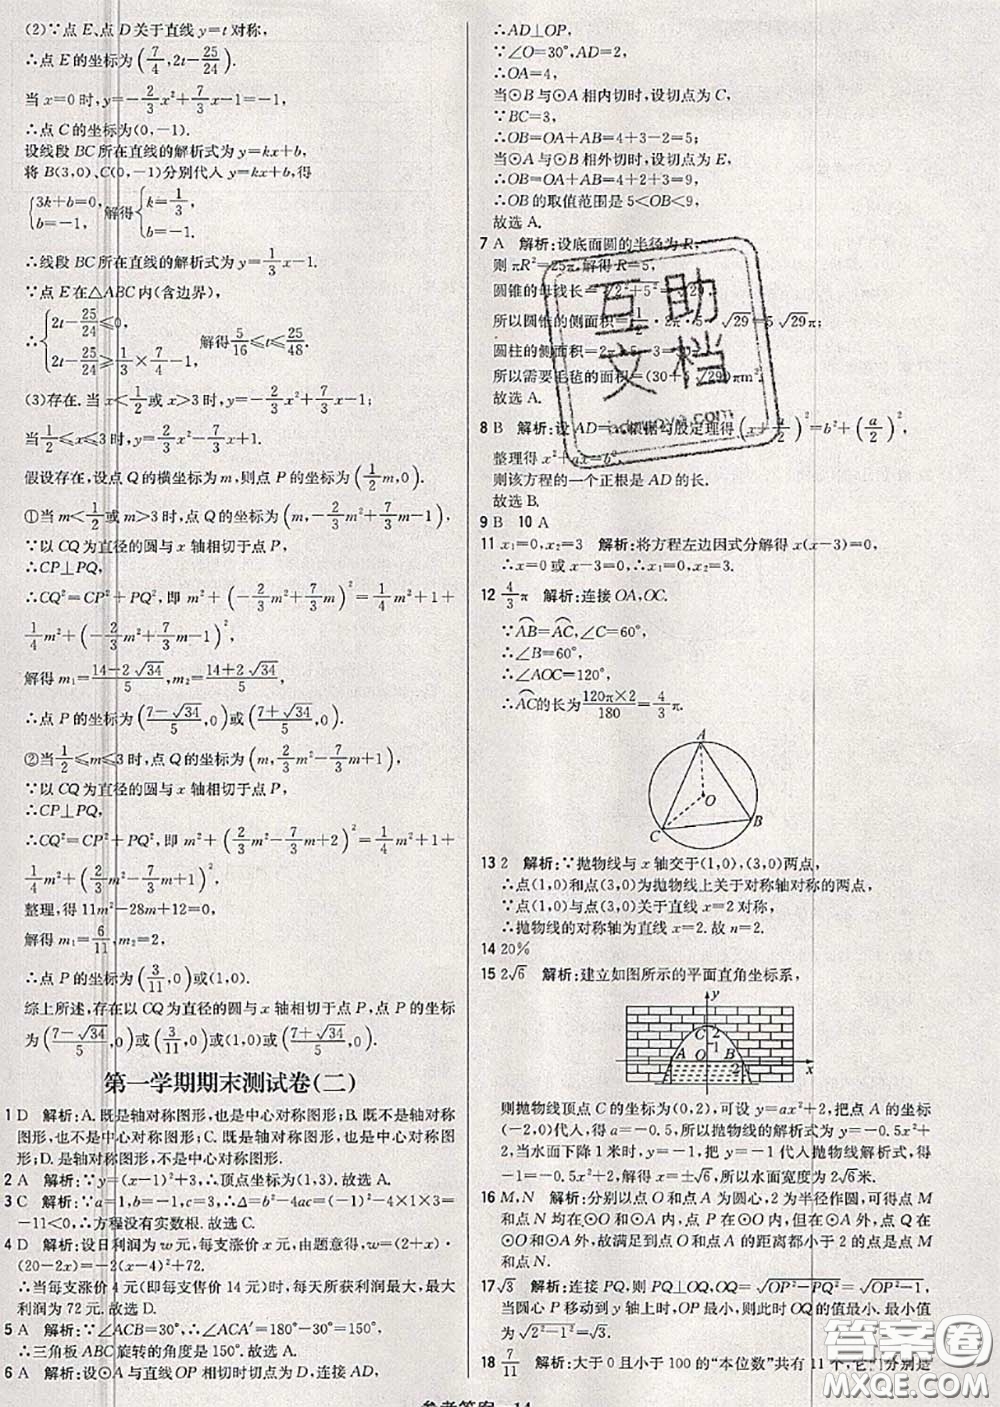 (2)∵点 E、点 D 关于直线 y=t 对称,
∴点 E 的坐标为(7/4, 2t-25/24).
当 x=0 时, y=-2/3x²+7/3x-1=-1,
∴点 C 的坐标为(0,-1).
设线段 BC 所在直线的解析式为 y=kx+b,
将 B(3,0)、C(0,-1)分别代入 y=kx+b,得
{3k+b=0, b=-1, 解得{k=1/3, b=-1.
∴线段 BC 所在直线的解析式为 y=1/3x-1.
∵点 E 在△ABC 内(含边界),
∴{2t-25/24≤0, 2t-25/24≥1/3×7/4-1, 解得5/16≤t≤25/48.
(3)存在. 当 x<1/2或 x>3 时, y=-2/3x²+7/3x-1;
当1/2≤x≤3 时, y=2/3x²-7/3x+1.
假设存在,设点 Q 的横坐标为 m,则点 P 的坐标为(1/2m,0).
①当 m<1/2或 m>3 时,点 Q 的坐标为(m,-2/3m²+7/3m-1),
∵以 CQ 为直径的圆与 x 轴相切于点 P,
∴CP⊥PQ,
∴CQ²=CP²+PQ²,即 m²+(-2/3m²+7/3m)²=1/4m²+1+
1/4m²+(-2/3m²+7/3m-1)²,
解得 m₁=(14-2√34)/5, m₂=(14+2√34)/5,
∴点 P 的坐标为((7-√34)/5,0)或((7+√34)/5,0).
②当1/2≤m≤3 时,点 Q 的坐标为(m,2/3m²-7/3m+1),
∵以 CQ 为直径的圆与 x 轴相切于点 P,
∴CP⊥PQ,
∴CQ²=CP²+PQ²,即 m²+(2/3m²-7/3m+2)²=1/4m²+1+
1/4m²+(2/3m²-7/3m+1)²,
整理,得 11m²-28m+12=0,
解得 m₁=6/11, m₂=2,
∴点 P 的坐标为(3/11,0)或(1,0).
综上所述,存在以 CQ 为直径的圆与 x 轴相切于点 P,点 P 的坐标
为((7-√34)/5,0)或(3/11,0)或(1,0)或((7+√34)/5,0).
第一学期期末测试卷(二)
1 D 解析:A. 既是轴对称图形,也是中心对称图形;B. 既不是轴对称
图形,也不是中心对称图形;C. 既是轴对称图形,也是中心对称图
形;D. 是轴对称图形,不是中心对称图形.
2 A 解析:∵y=(x-1)²+3,∴顶点坐标为(1,3). 故选 A.
3 C 解析:∵a=1,b=-1,c=3,∴Δ=b²-4ac=(-1)²-4×1×3=
-11<0,∴方程没有实数根. 故选 C.
4 D 解析:设日利润为 w 元,每支涨价 x 元,由题意得,w=(2+x)·
(20-2x)=-2(x-4)²+72,
∴当每支涨价 4 元(即每支售价 14 元)时,每天所获利润最大,最大
利润为 72 元. 故选 D.
5 A 解析:∵∠ACB=30°,∴∠ACA′=180°-30°=150°,
∴三角板 ABC 旋转的角度是 150°. 故选 A.
6 A 解析:设⊙A 与直线 OP 相切时切点为 D,连接 AD,
∴AD⊥OP,
∵∠O=30°,AD=2,
∴OA=4,
当⊙B 与⊙A 相内切时,设切点为 C,
∵BC=3,
∴OB=OA+AB=4+3-2=5;
当⊙A 与⊙B 相外切时,设切点为 E,
∴OB=OA+AB=4+2+3=9,
∴OB 的取值范围是 5<OB<9,
故选 A.
7 A 解析:设底面圆的半径为 R,
则 πR²=25π,解得 R=5,
圆锥的母线长=√2²+5²=√29,
所以圆锥的侧面积=1/2·2π·5·√29=5√29π;
圆柱的侧面积=2π·5·3=30π,
所以需要毛毡的面积=(30+5√29)πm².
故选 A.
8 B 解析:设 AD=x,根据勾股定理得(x+a/2)²=b²+(a/2)²,
整理得 x²+ax=b²,
则该方程的一个正根是 AD 的长.
故选 B.
9 B 10 A
11 x₁=0,x₂=3 解析:将方程左边因式分解得 x(x-3)=0,
∴x=0 或 x-3=0,∴x₁=0,x₂=3.
12 4/3π 解析:连接 OA,OC.
∵AB=AC,∠C=60°,
∴∠B=60°,
∴∠AOC=120°,
∴AC的长为120π×2/180=4/3π.
A
O
C
B
13 2 解析:∵抛物线与 x 轴交于(1,0),(3,0)两点,
∴点(1,0)和点(3,0)为抛物线上关于对称轴对称的两点,
∵点(1,0)与点(3,0)关于直线 x=2 对称,
∴抛物线的对称轴为直线 x=2. 故 n=2.
14 20%
15 2√6 解析:建立如图所示的平面直角坐标系,
y
C 2
1
A O B
2 x
则抛物线顶点 C 的坐标为(0,2),可设 y=ax²+2,把点 A 的坐标
(-2,0)代入,得 a=-0.5,所以抛物线的解析式为 y=-0.5x²+
2,当水面下降 1 米时,y=-1,把 y=-1 代入抛物线解析式,得
-1=-0.5x²+2,解得 x=±√6,所以水面宽度为 2√6米.
16 M,N 解析:分别以点 O 和点 A 为圆心,2 为半径作圆,可得点 M
和点 N 均在⊙O 和⊙A 内,点 P 在⊙O 内,但在⊙A 外,点 Q 在
⊙O 外,故满足到点 O 和点 A 的距离都小于 2 的点是点 M
和点 N.
17 √3 解析:连接 PQ,则 PQ⊥OQ,OQ=√OP²-PQ²=√OP²-1,
当圆心 P 移动到 y 轴上时,OP 最小,则此时 OQ 的值最小. 最小值是
√2²-1²=√3.
18 7/11 解析:大于 0 且小于 100 的“本位数”共有 11 个,它们分别是
参考答案 14
互助
文档
答案圈
MXQE.COM